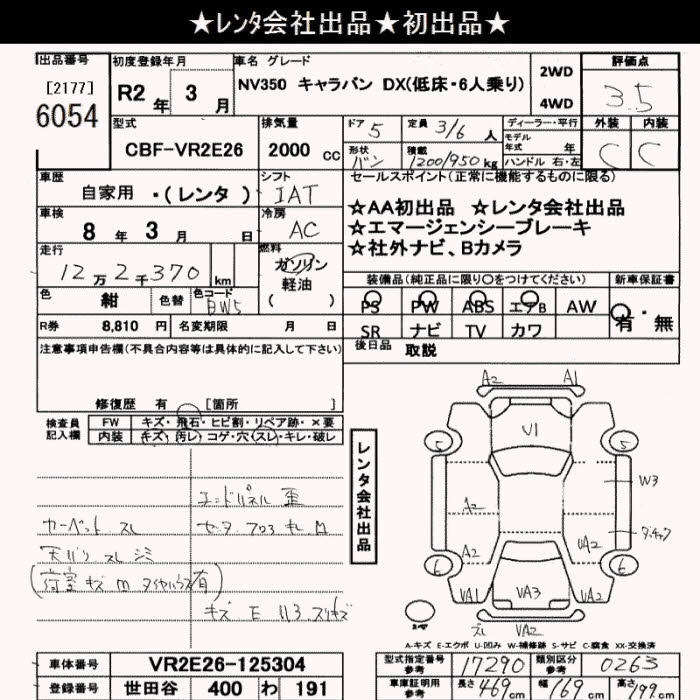 ★レンタ会社出品★初出品★
出品番号
[2177]
6054
初度登録年月
R2年 3月
車名 グレード
NV350 キャラバン DX(低床・6人乗り)
2WD
4WD
評価点
3.5
型式
CBF-VR2E26
排気量
2000 cc
ドア 5
定員 3/6 人
形状 バン
積載 1200/950 kg
ディーラー・平行
モデル
年式 年
ハンドル 右・左
外装
C
内装
C
車歴
自家用 ・(レンタ )
シフト
IAT
セールスポイント(正常に機能するものに限る)
☆AA初出品 ☆レンタ会社出品
☆エマージェンシーブレーキ
☆社外ナビ、Bカメラ
車検
8年 3月 日
冷房
AC
走行
12万2千370 km
燃料
ガソリン
軽油
( )
装備品(純正品に限り○をつけてください)
PS PW ABS エアB AW
SR ナビ TV カワ
新車保証書
有・無
色
紺
色替
色コード
BW5
R券 8,810 円
名変期限 月 日
後日品 取説
注意事項申告欄(不具合内容等は具体的に記入して下さい)
修復歴 有 [箇所
検査員
記入欄
FW キズ・飛石・ヒビ割・リペア跡・×要
内装 キズ・汚レ・コゲ・穴・スレ・キレ・破レ
エンドパネル 歪
カーペット スレ
天バリ スレ シミ
荷室 キズ m タイヤハウス有
キズ E
レンタ会社出品
A2 A1
V1
5 5
W3
A2
A2 UA2
6 6
VA1 VA3 UA2
スレ VA2
A-キズ E-エクボ U-凹み W-補修跡 S-サビ C-腐食 XX-交換済
車体番号 VR2E26-125304
登録番号 世田谷 400 わ 191
型式指定番号
参考
17290
類別区分
参考
0263
車庫証明用
参考
長さ 469 cm
幅 169 cm
高さ 199 cm